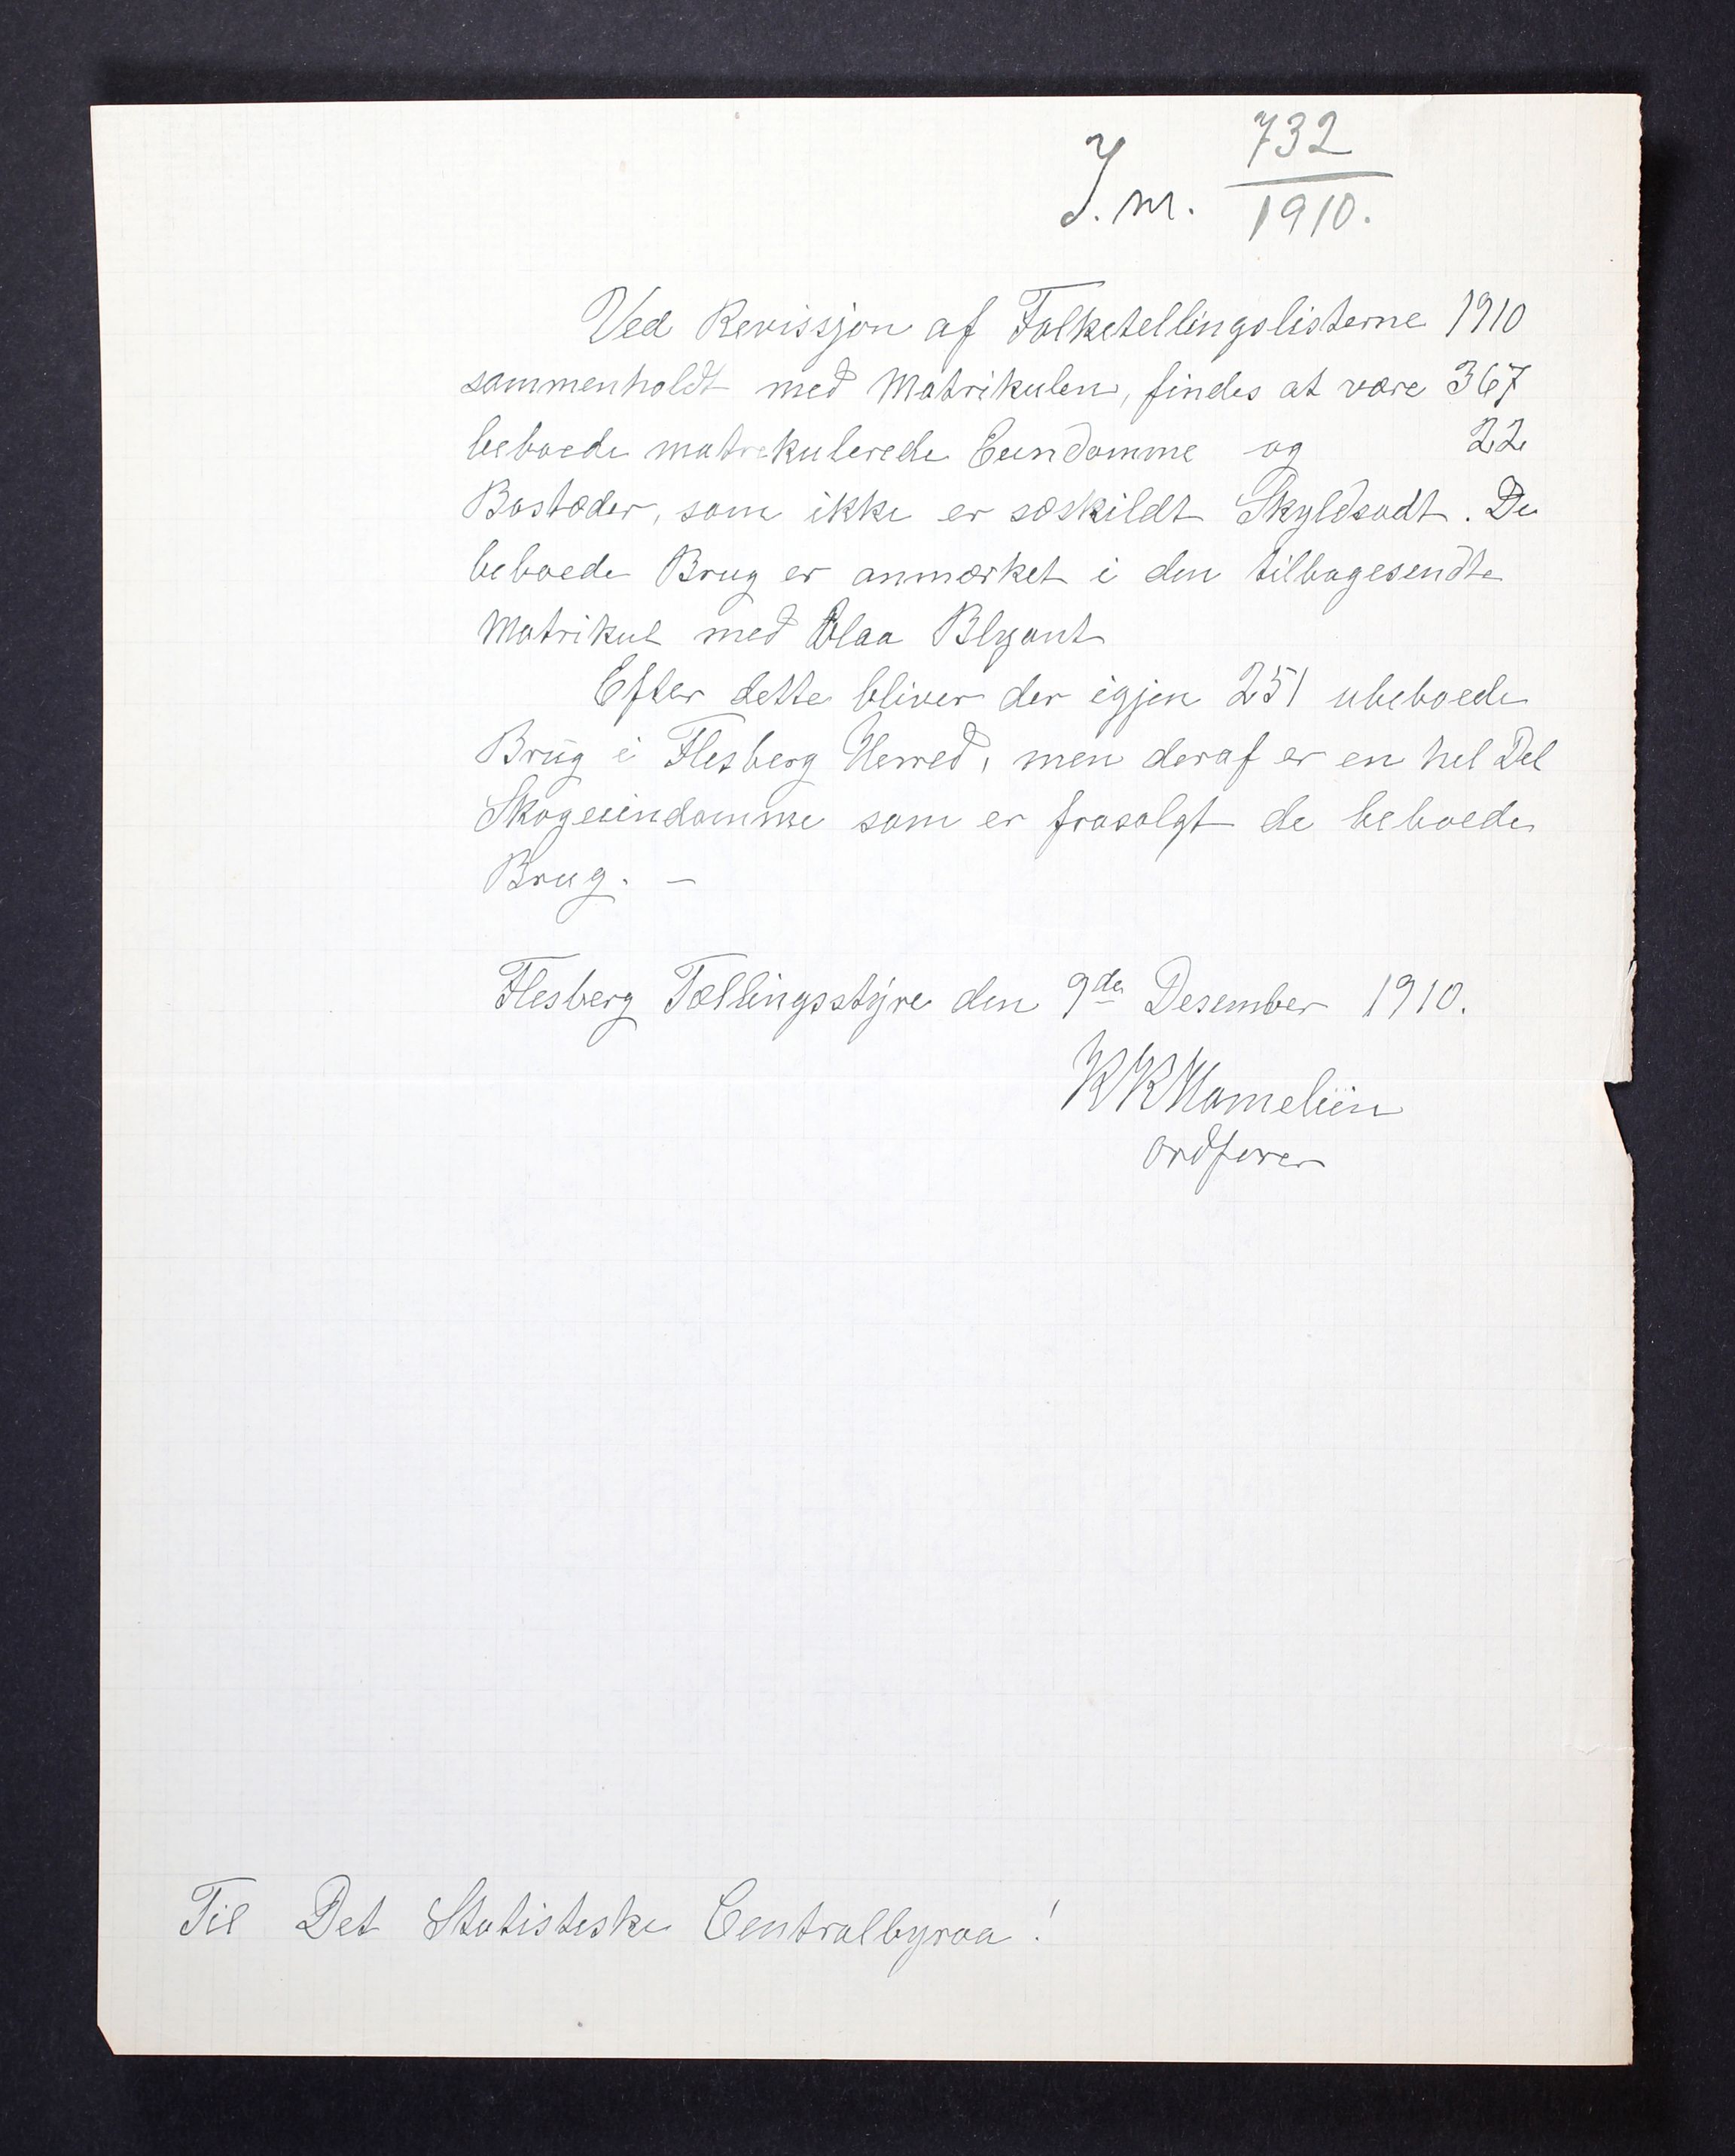 J.nr. 732
1910.
Ved Revissjon af Folketellingslisterne 1910
sammenholdt med Matrikulen, findes at være 367
beboede matrekulerede Eiendomme og 22
Bostæder, som ikke er sæskildt Skyldsadt. De
beboede Brug er anmærket i den tilbagesendte
Matrikul med Blaa Blyant
Efter dette bliver der igjen 251 ubeboede
Brug i Flesberg Herred, men deraf er en hel Del
Skogeiendomme som er frasolgt de beboede
Brug. –
Flesberg Tællingsstyre den 9de Desember 1910.
KKHameliin
Ordfører
Til Det Statistiske Centralbyraa!